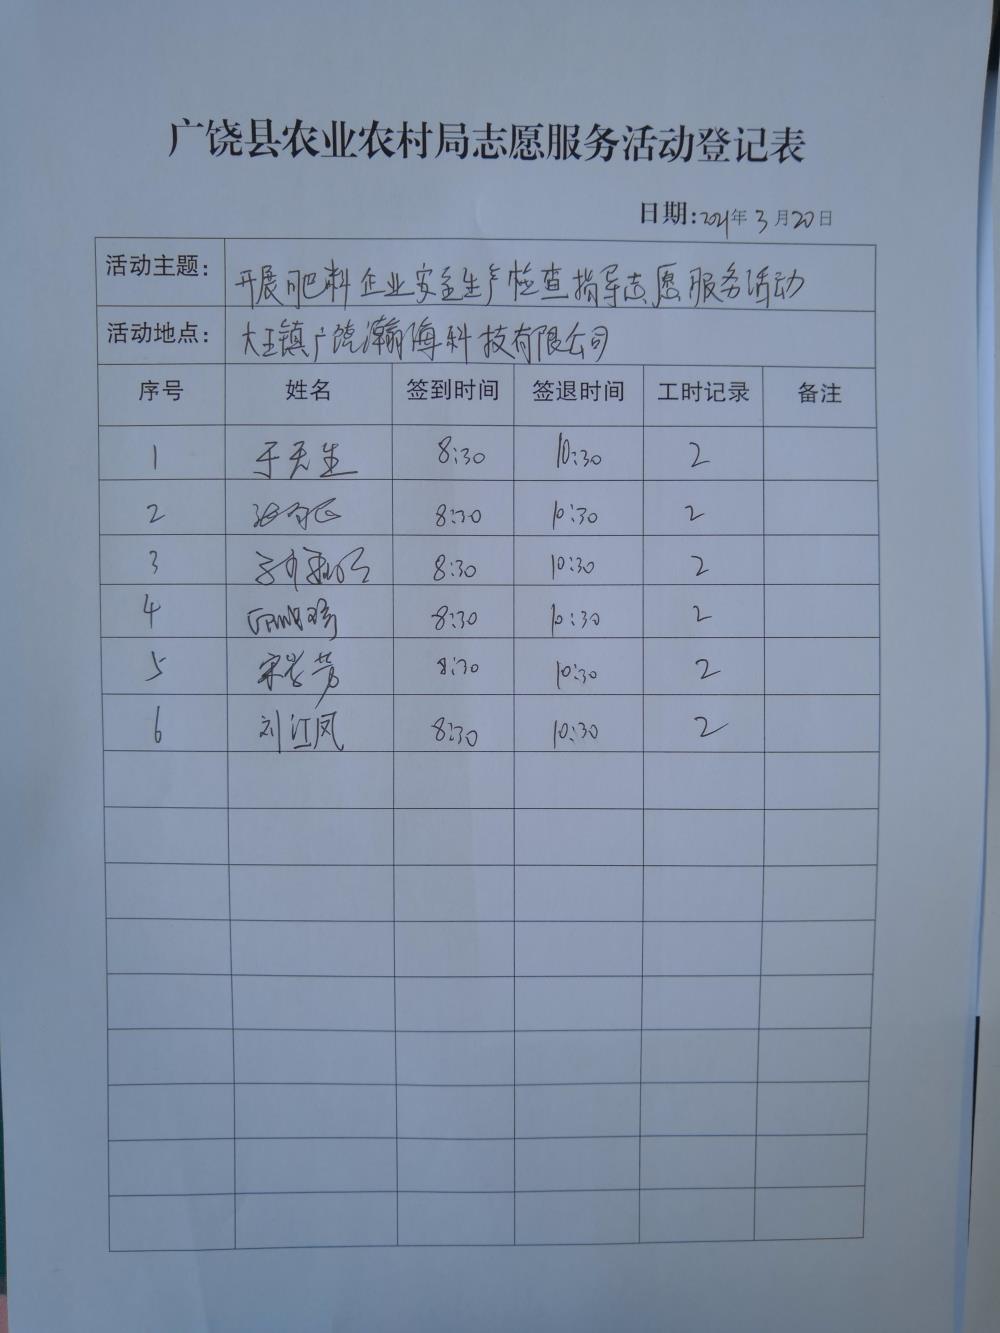 广饶县农业农村局志愿服务活动登记表
日期:2021年3月20日
活动主题: 开展肥料企业安全生产检查指导志愿服务活动
活动地点: 大王镇广饶瀚海科技有限公司
序号 姓名 签到时间 签退时间 工时记录 备注
1 于天生 8:30 10:30 2
2 8:30 10:30 2
3 8:30 10:30 2
4 8:30 10:30 2
5 8:30 10:30 2
6 刘江凤 8:30 10:30 2